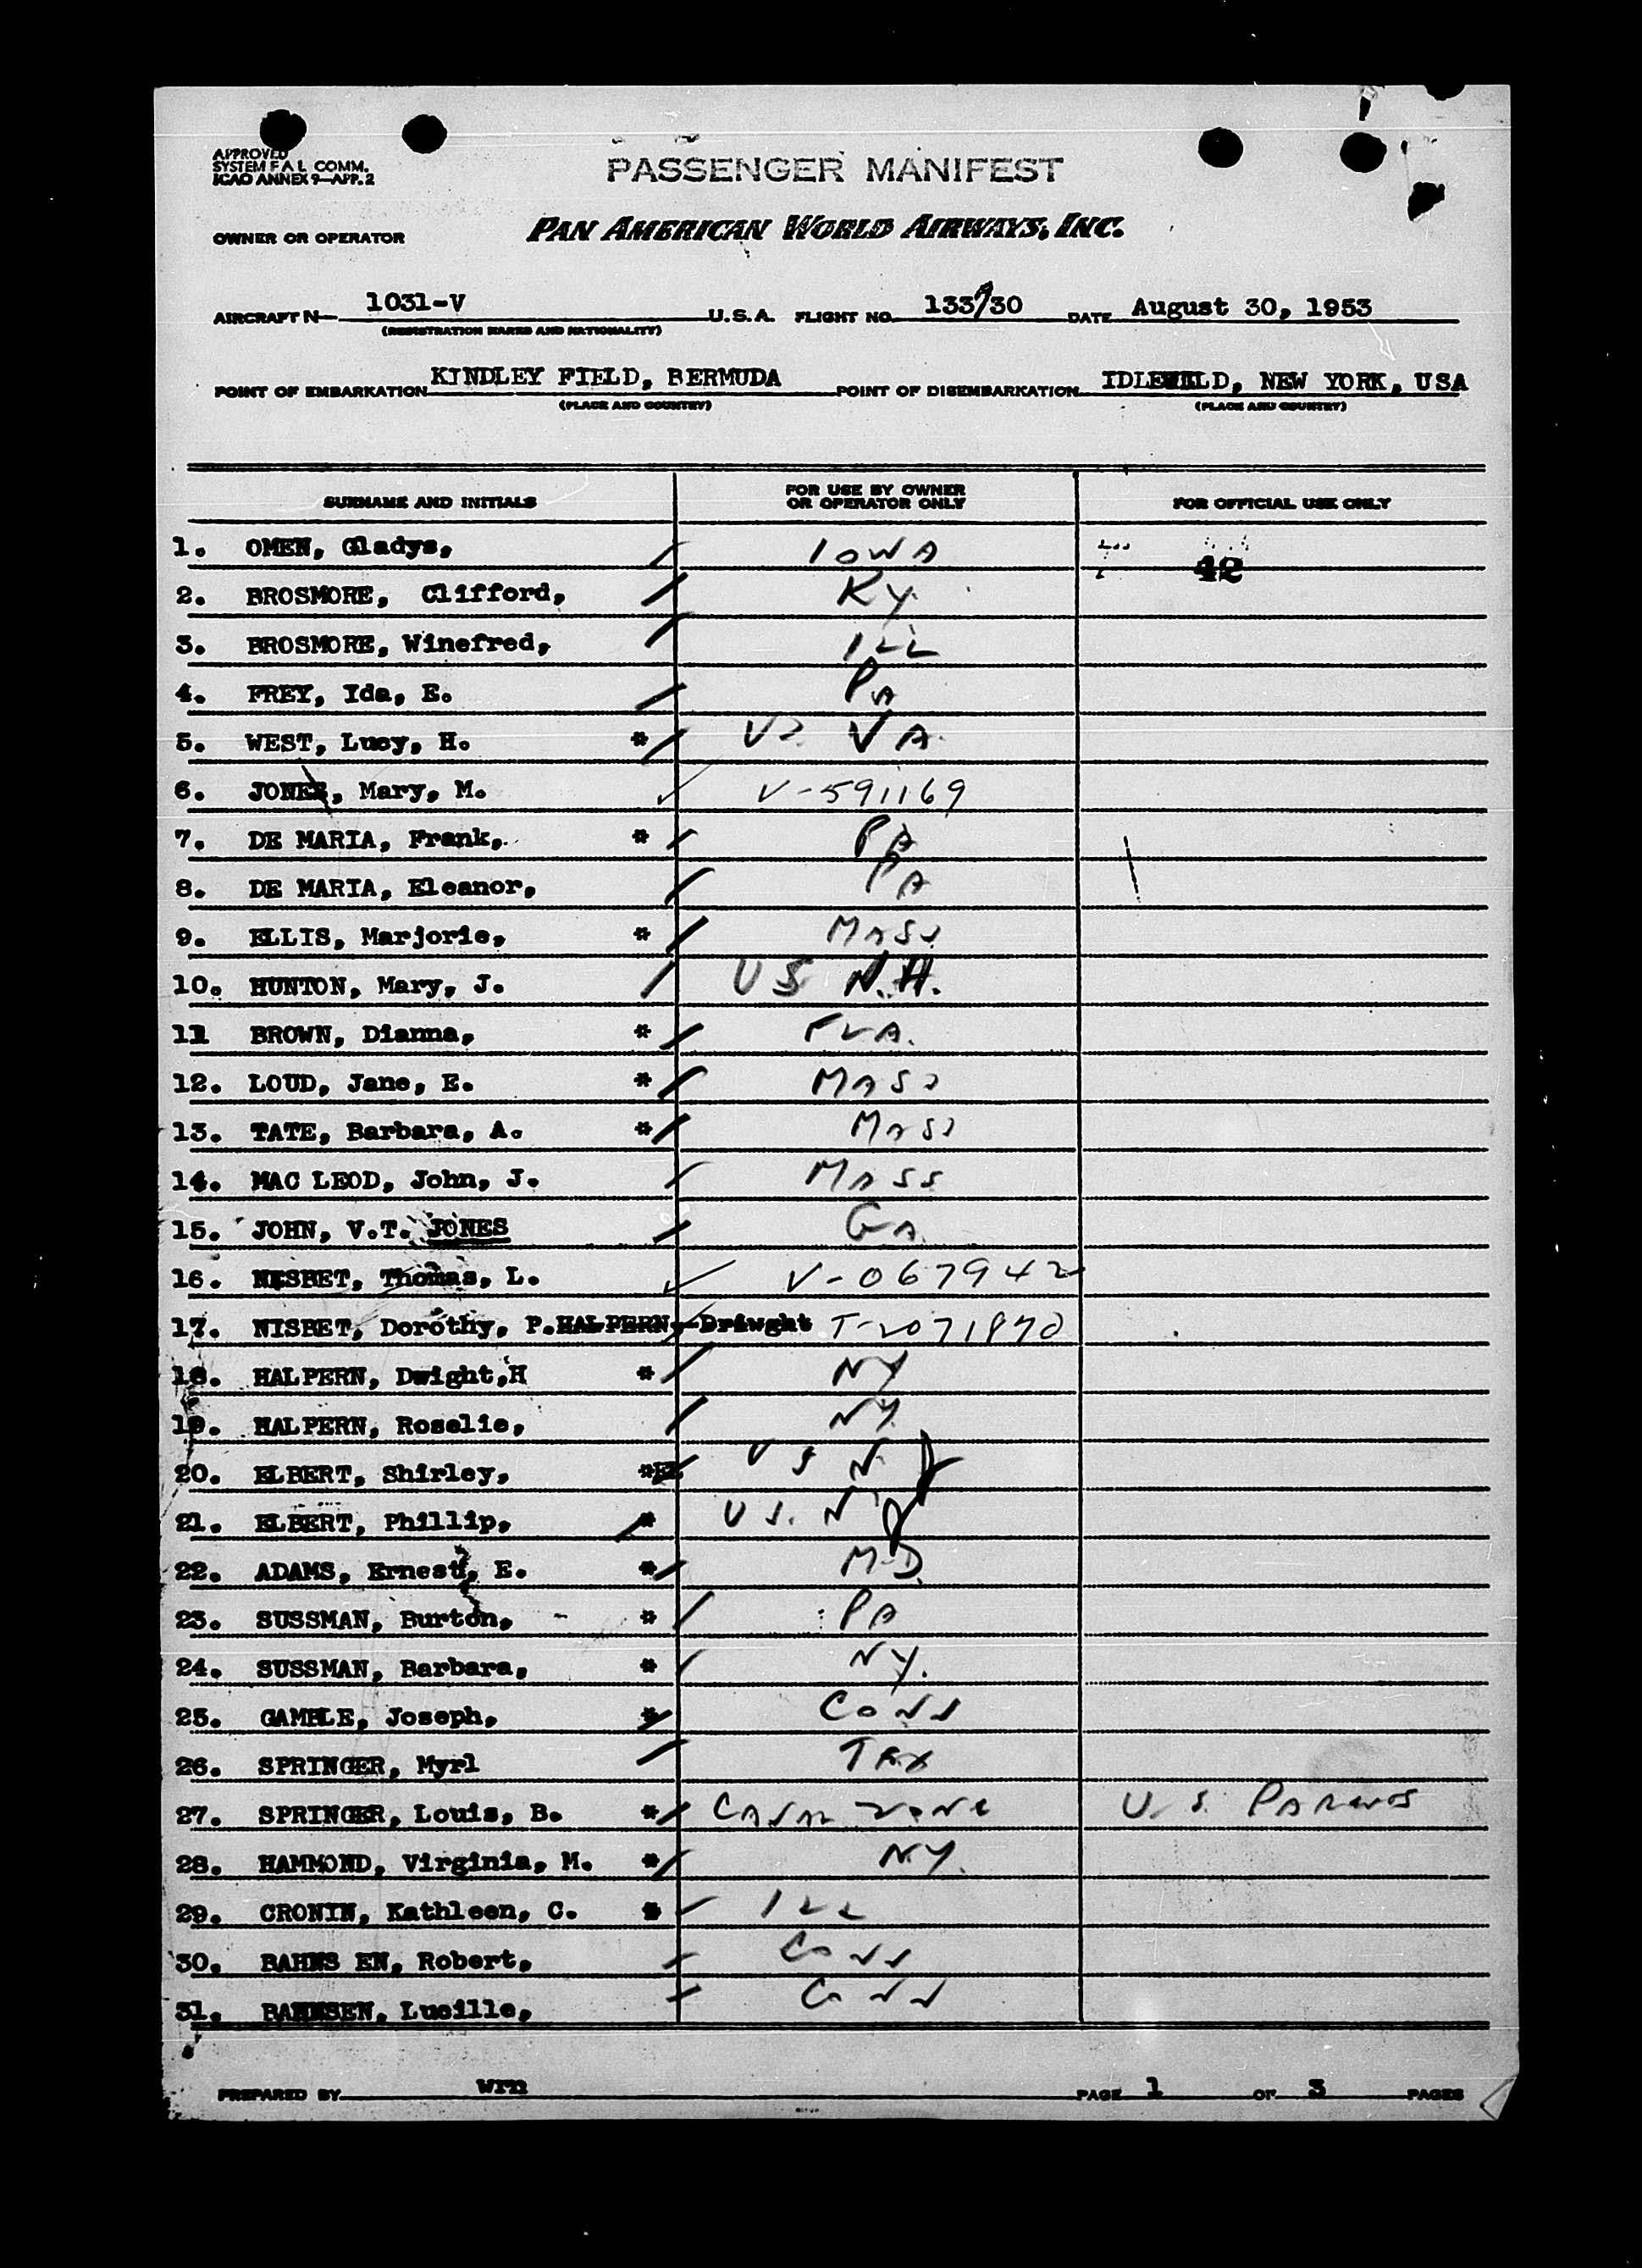 APPROVED
SYSTEM F A L COMM.
ICAO ANNEX 9—APP. 2
PASSENGER MANIFEST
OWNER OR OPERATOR PAN AMERICAN WORLD AIRWAYS, INC.
AIRCRAFT N— 1031-V U.S.A. FLIGHT NO. 133A/30 DATE August 30, 1953
(REGISTRATION MARKS AND NATIONALITY)
POINT OF EMBARKATION KINDLEY FIELD, BERMUDA POINT OF DISEMBARKATION IDLEWILD, NEW YORK, USA
(PLACE AND COUNTRY) (PLACE AND COUNTRY)
SURNAME AND INITIALS FOR USE BY OWNER OR OPERATOR ONLY FOR OFFICIAL USE ONLY
1. OMEN, Gladys, IOWA 42
2. BROSMORE, Clifford, Ky.
3. BROSMORE, Winefred, ILL
4. FREY, Ida, E. PA
5. WEST, Lucy, H. * US. VA.
6. JONES, Mary, M. V-591169
7. DE MARIA, Frank, * PA
8. DE MARIA, Eleanor, PA
9. ELLIS, Marjorie, * MASS
10. HUNTON, Mary, J. US N.H.
11 BROWN, Dianna, * FLA.
12. LOUD, Jane, E. * MASS
13. TATE, Barbara, A. * MASS
14. MAC LEOD, John, J. MASS
15. JOHN, V.T. JONES GA
16. NISBET, Thomas, L. V-067942
17. NISBET, Dorothy, P. HALPERN, Driwght T-2071870
18. HALPERN, Dwight,H * NY
19. HALPERN, Roselie, NY.
20. ELBERT, Shirley, * US NJ
21. ELBERT, Phillip, * US. NJ
22. ADAMS, Ernest, E. * M.D.
23. SUSSMAN, Burton, * PA
24. SUSSMAN, Barbara, * NY.
25. GAMBLE, Joseph, * CONN
26. SPRINGER, Myrl TEX
27. SPRINGER, Louis, B. * CANAL ZONE U.S. PARENTS
28. HAMMOND, Virginia, M. * NY.
29. CRONIN, Kathleen, C. * ILL
30. BAHNS EN, Robert, CONN
31. BAHNSEN, Lucille, CONN
PREPARED BY PAGE 1 OF 3 PAGES